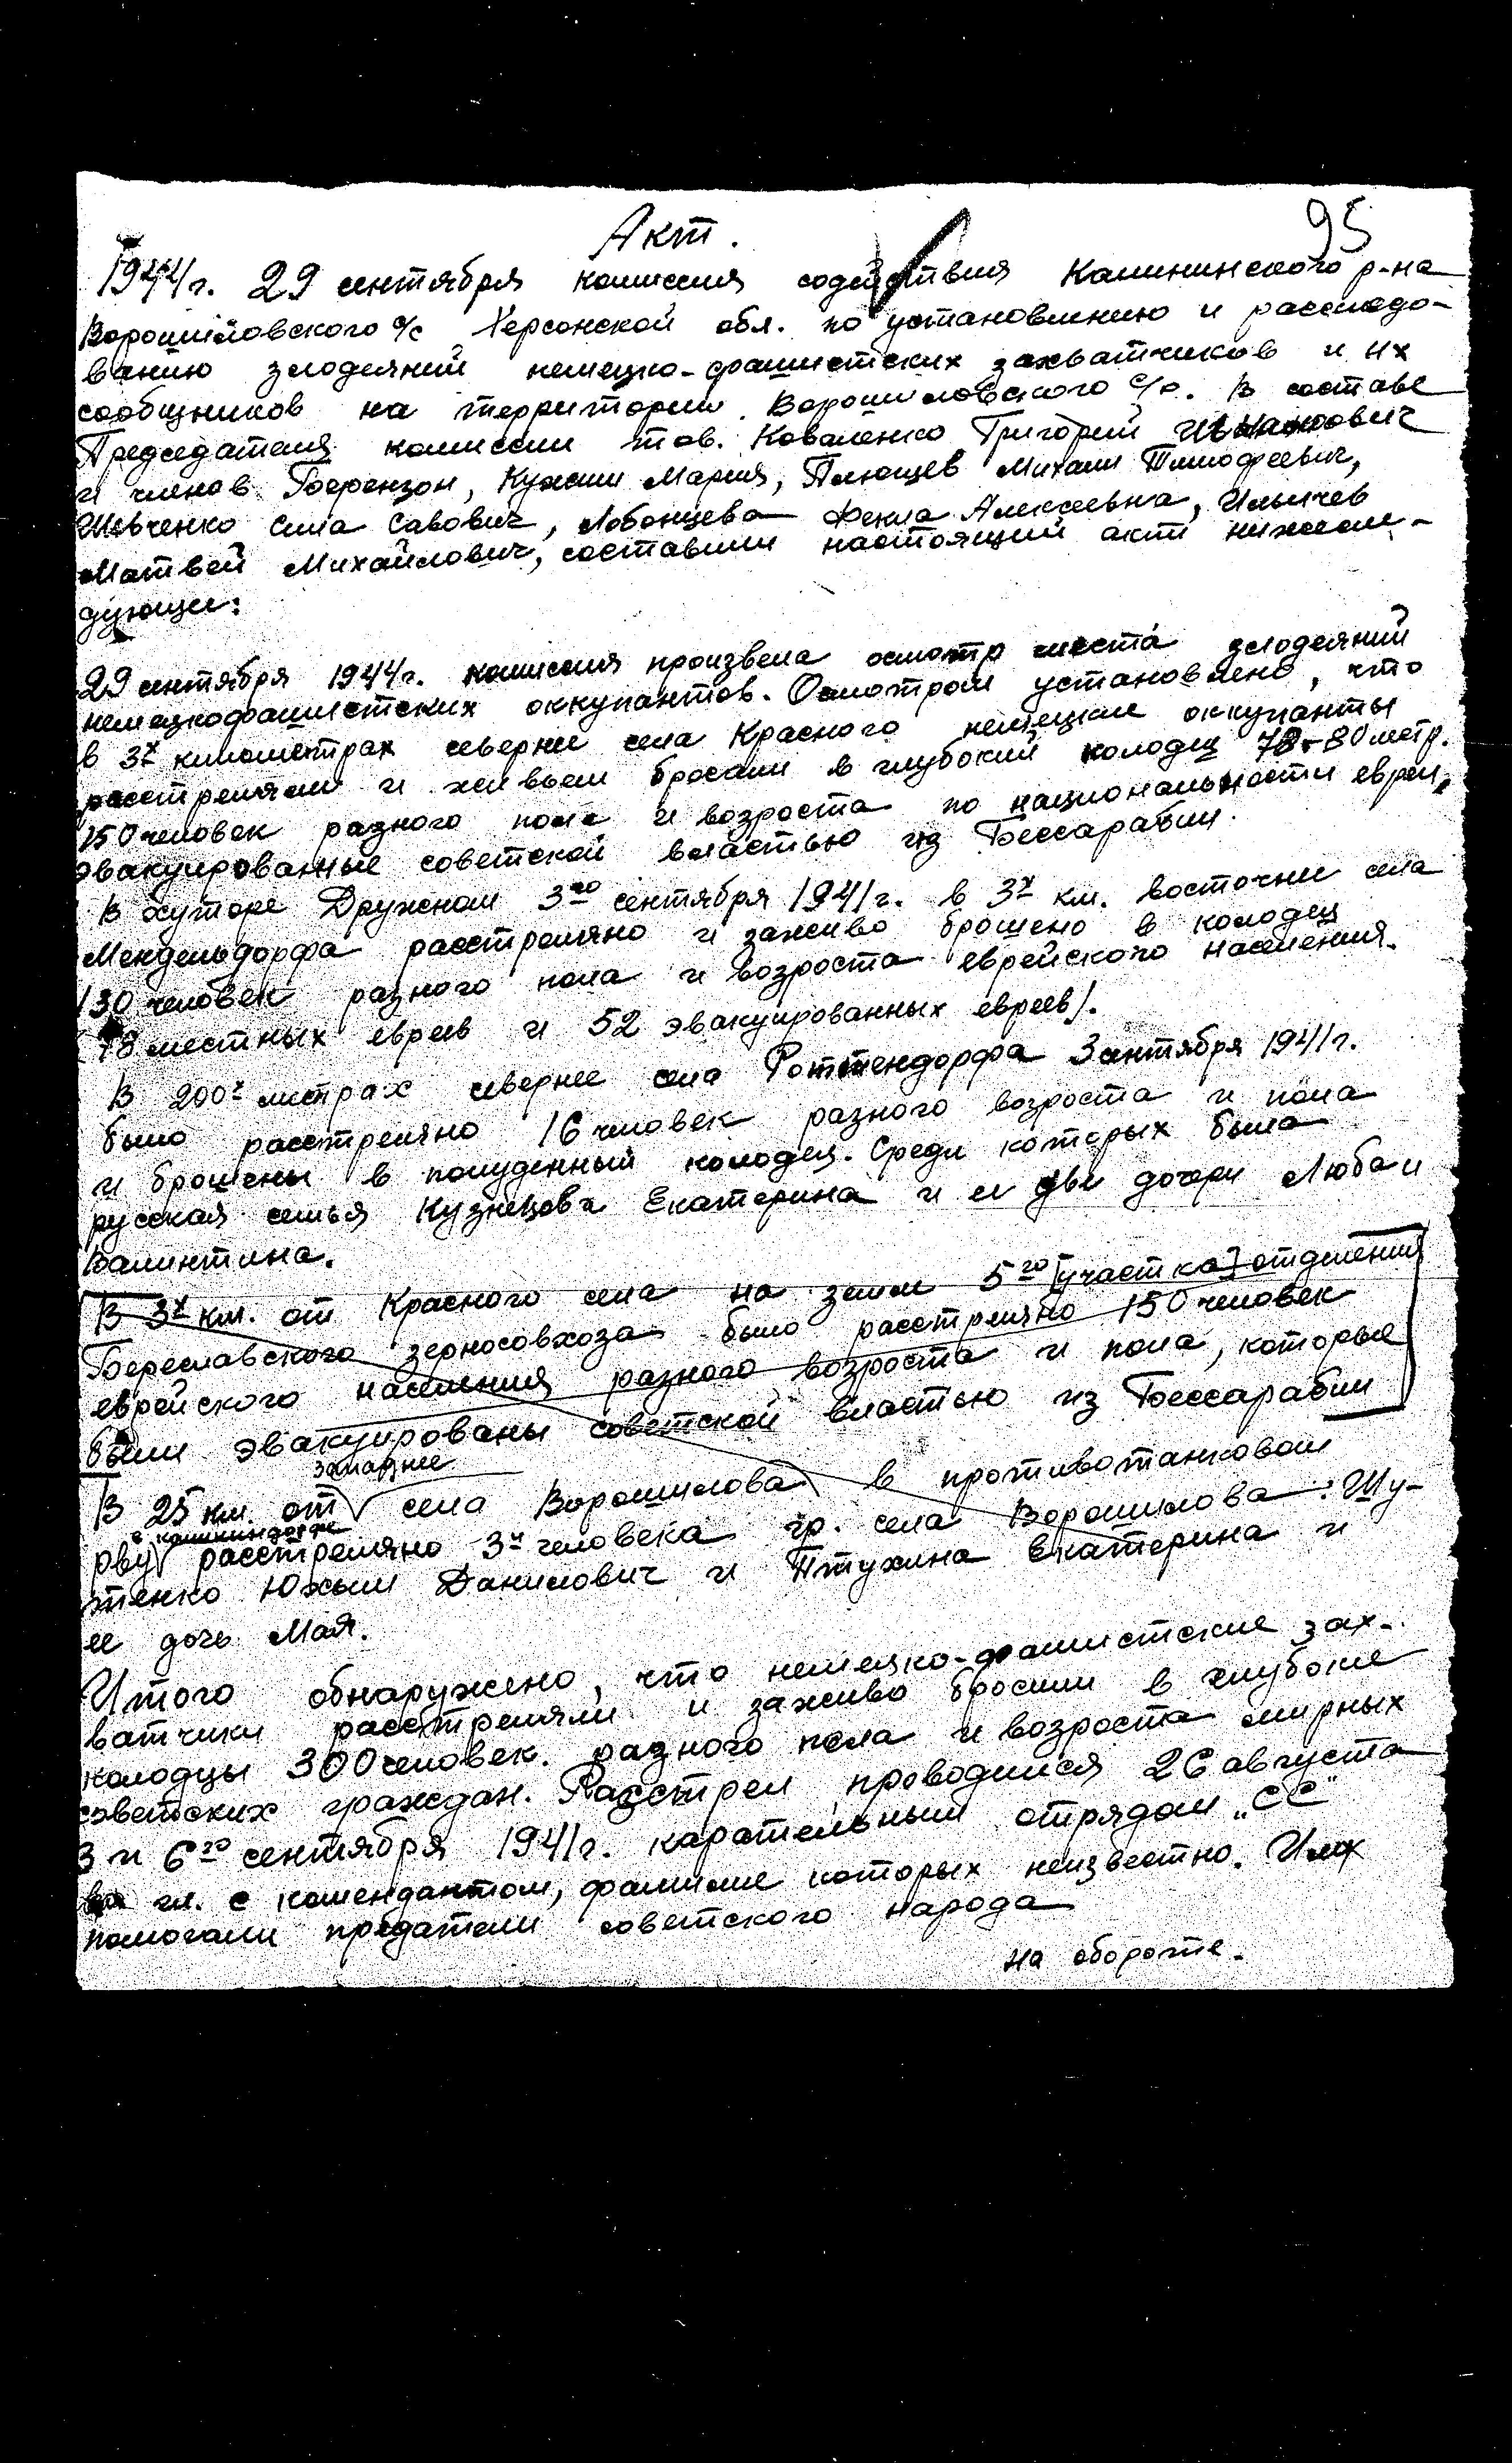 95
Акт.
1944г. 29 сентября комиссия содействия Калининского р-на
Ворошиловского с/с Херсонской обл. по установлению и расследо-
ванию злодеяний немецко-фашистских захватчиков и их
сообщников на территории Ворошиловского с/с. В составе
Председателя комиссии тов. Коваленко Григорий Иванович
и членов Берензон, Кужии Мария, Плющев Михаил Тимофеевич,
Шевченко Сила Савович, Лобанцева Фекла Алексеевна, Ильичев
Матвей Михайлович, составили настоящий акт нижесле-
дующе:
29 сентября 1944г. комиссия произвела осмотр места злодеяний
немецкофашистских оккупантов. Осмотром установлено, что
в 3х километрах севернее села Красного немецкие оккупанты
расстреляли и живьем бросали в глубокий колодец 78-80 метр.
150 человек разного пола и возроста по национальности евреи,
эвакуированные советской властью из Бессарабии.
В хуторе Дружном 3го сентября 1941г. в 3х км. восточнее села
Мендельдорфа расстреляно и заживо брошено в колодец
130 человек разного пола и возроста еврейского населения.
78 местных евреев и 52 эвакуированных евреев/.
В 200х метрах севернее села Роттендорфа 3 сентября 1941г.
было расстреляно 16 человек разного возроста и пола
и брошены в колодец. Среди которых была
русская семья Кузнецова Екатерина и ее две дочери Люба и
Валинтина.
В 3х км. от Красного села на земле 5го [участка] отделения
Бериславского зерносовхоза было расстреляно 150 человек
еврейского населения разного возроста и пола, которые
были эвакуированы советской властью из Бессарабии
западнее
В 25 км. от села Ворошилова в противотанковом
в
рву расстреляно 3и человека гр. села Ворошилова: Шу-
тенко Юхым Данилович и Птухина Екатерина и
ее дочь Мая.
Итого обнаружено, что немецко-фашистские зах-
ватчики расстреляли и заживо бросили в глубокие
колодцы 300 человек. разного пола и возроста мирных
советских граждан. Расстрел проводился 26 августа
3 и 6го сентября 1941г. карательным отрядом „СС"
гл. с комендантом, фамилие которых неизвестно. Имх
помогали предатели советского народа
на обороте.